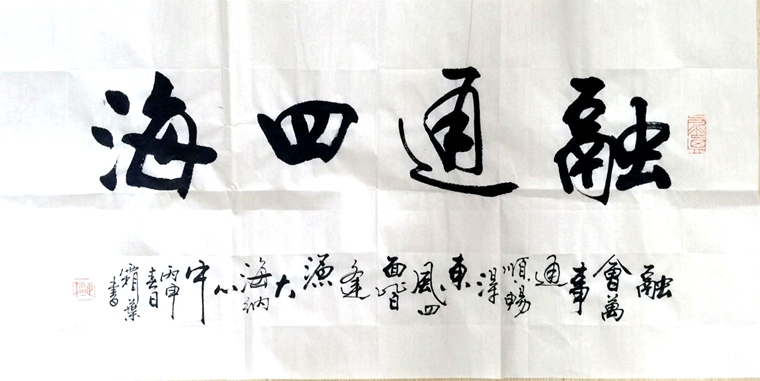 融通四海
融會萬事通順暢得東風四面皆逢源大海納心中
丙申春日霜葉書